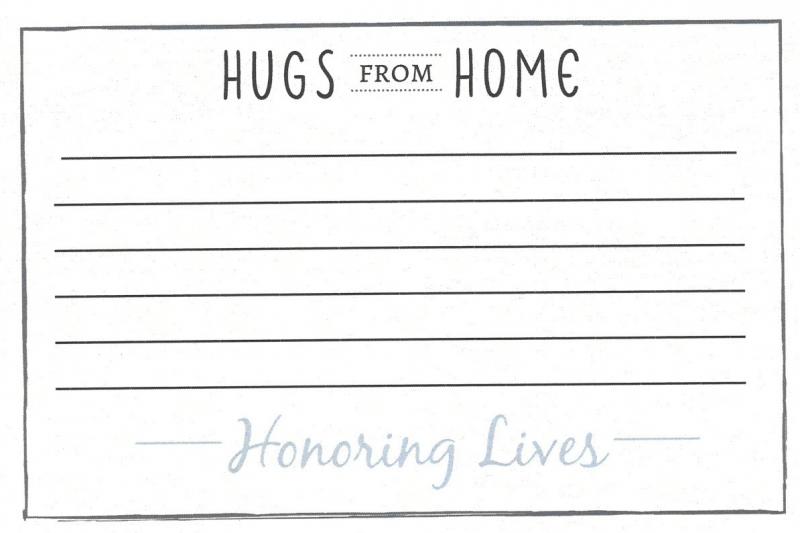 HUGS FROM HOME
Honoring Lives